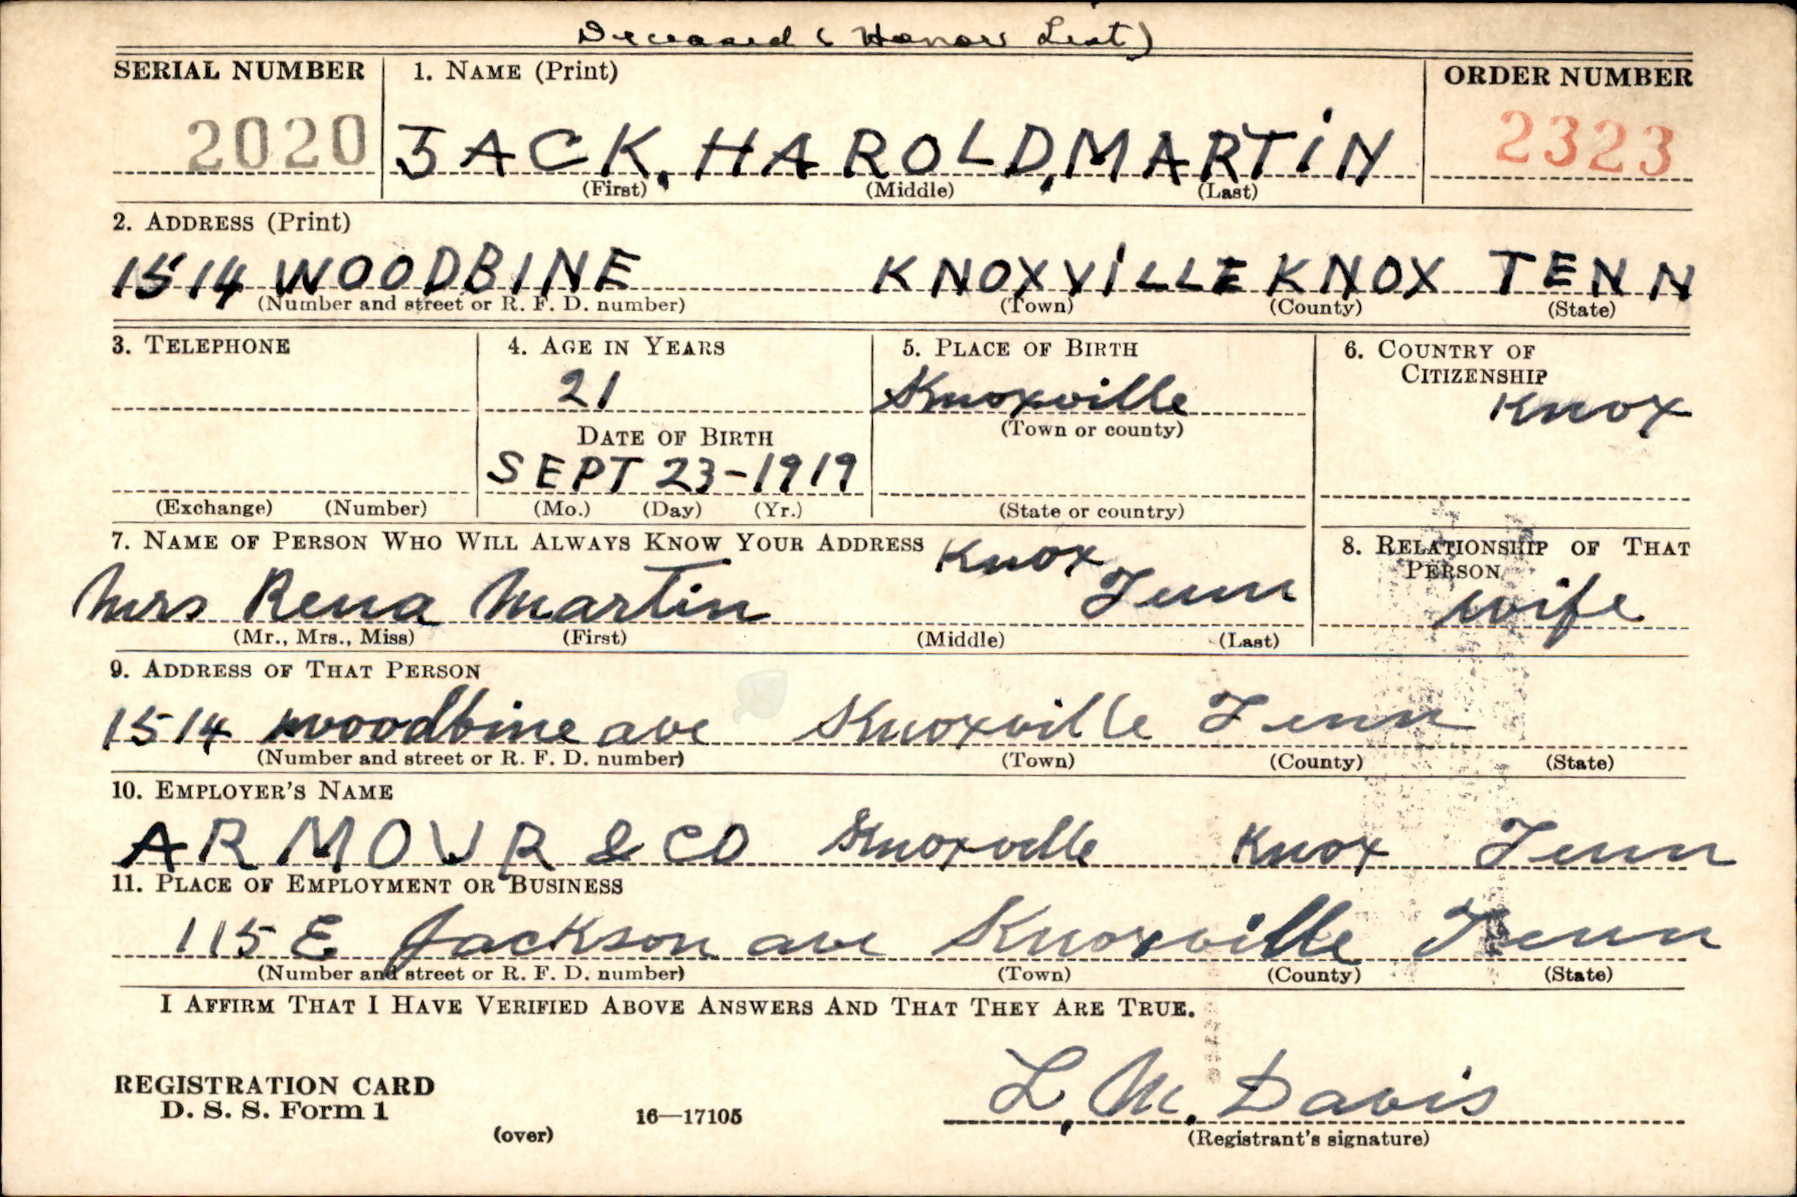 Deceased (Honor List)
SERIAL NUMBER 1. NAME (Print) ORDER NUMBER
2020 JACK, HAROLD, MARTIN 2323
(First) (Middle) (Last)
2. ADDRESS (Print)
1514 WOODBINE KNOXVILLE KNOX TENN
(Number and street or R. F. D. number) (Town) (County) (State)
3. TELEPHONE 4. AGE IN YEARS 5. PLACE OF BIRTH 6. COUNTRY OF
CITIZENSHIP
21 Knoxville Knox
(Town or county)
DATE OF BIRTH
SEPT 23-1919
(Exchange) (Number) (Mo.) (Day) (Yr.) (State or country)
7. NAME OF PERSON WHO WILL ALWAYS KNOW YOUR ADDRESS Knox 8. RELATIONSHIP OF THAT
PERSON
Mrs Rena Martin Tenn wife
(Mr., Mrs., Miss) (First) (Middle) (Last)
9. ADDRESS OF THAT PERSON
1514 woodbine ave Knoxville Tenn
(Number and street or R. F. D. number) (Town) (County) (State)
10. EMPLOYER'S NAME
ARMOUR & CO Knoxville Knox Tenn
11. PLACE OF EMPLOYMENT OR BUSINESS
115 E Jackson ave Knoxville Tenn
(Number and street or R. F. D. number) (Town) (County) (State)
I AFFIRM THAT I HAVE VERIFIED ABOVE ANSWERS AND THAT THEY ARE TRUE.
REGISTRATION CARD
D. S. S. Form 1 16—17105 L. M. Davis
(over) (Registrant's signature)